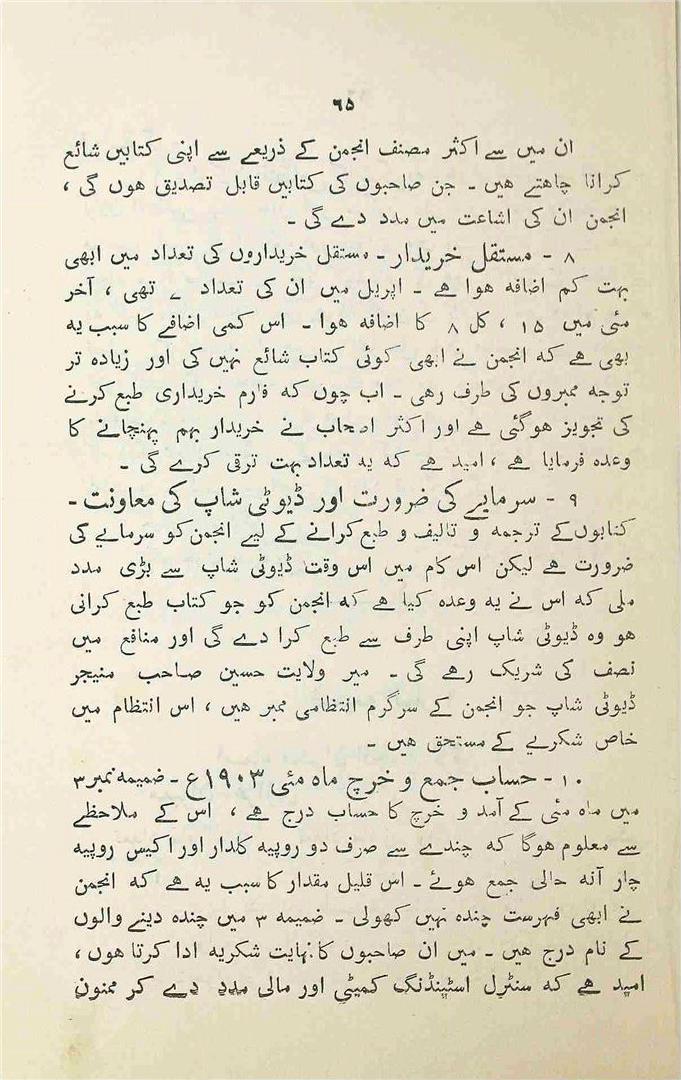 ٦٥
ان میں سے اکثر مصنف انجمن کے ذریعے سے اپنی کتابیں شائع
کرانا چاہتے ہیں ۔ جن صاحبوں کی کتابیں قابل تصدیق ہوں گی ،
انجمن ان کی اشاعت میں مدد دے گی ۔
۸ ۔ مستقل خریدار ۔ مستقل خریداروں کی تعداد میں ابھی
بہت کم اضافہ ہوا ہے ۔ اپریل میں ان کی تعداد ۷ تھی ، آخر
مئی میں ۱۵ ، کل ۸ کا اضافہ ہوا ۔ اس کمی اضافے کا سبب یہ
بھی ہے کہ انجمن نے ابھی کوئی کتاب شائع نہیں کی اور زیادہ تر
توجہ ممبروں کی طرف رہی ۔ اب چوں کہ فارم خریداری طبع کرنے
کی تجویز ہوگئی ہے اور اکثر اصحاب نے خریدار بہم پہنچانے کا
وعدہ فرمایا ہے ، امید ہے کہ یہ تعداد بہت ترقی کرے گی ۔
۹ ۔ سرمایے کی ضرورت اور ڈیوٹی شاپ کی معاونت ۔
کتابوں کے ترجمہ و تالیف و طبع کرانے کے لیے انجمن کو سرمایے کی
ضرورت ہے لیکن اس کام میں اس وقت ڈیوٹی شاپ سے بڑی مدد
ملی کہ اس نے یہ وعدہ کیا ہے کہ انجمن کو جو کتاب طبع کرانی
ہو وہ ڈیوٹی شاپ اپنی طرف سے طبع کرا دے گی اور منافع میں
نصف کی شریک رہے گی ۔ میر ولایت حسین صاحب منیجر
ڈیوٹی شاپ جو انجمن کے سرگرم انتظامی ممبر ہیں ، اس انتظام میں
خاص شکریے کے مستحق ہیں ۔
۱۰ ۔ حساب جمع و خرچ ماہ مئی ۱۹۰۳ع ۔ ضمیمہ نمبر ۳
میں ماہ مئی کے آمد و خرچ کا حساب درج ہے ، اس کے ملاحظے
سے معلوم ہوگا کہ چندے سے صرف دو روپیہ کلدار اور اکیس روپیہ
چار آنہ حالی جمع ہوئے ۔ اس قلیل مقدار کا سبب یہ ہے کہ انجمن
نے ابھی فہرست چندہ نہیں کھولی ۔ ضمیمہ ۳ میں چندہ دینے والوں
کے نام درج ہیں ۔ میں ان صاحبوں کا نہایت شکریہ ادا کرتا ہوں ،
امید ہے کہ سنٹرل اسٹینڈنگ کمیٹی اور مالی مدد دے کر ممنون